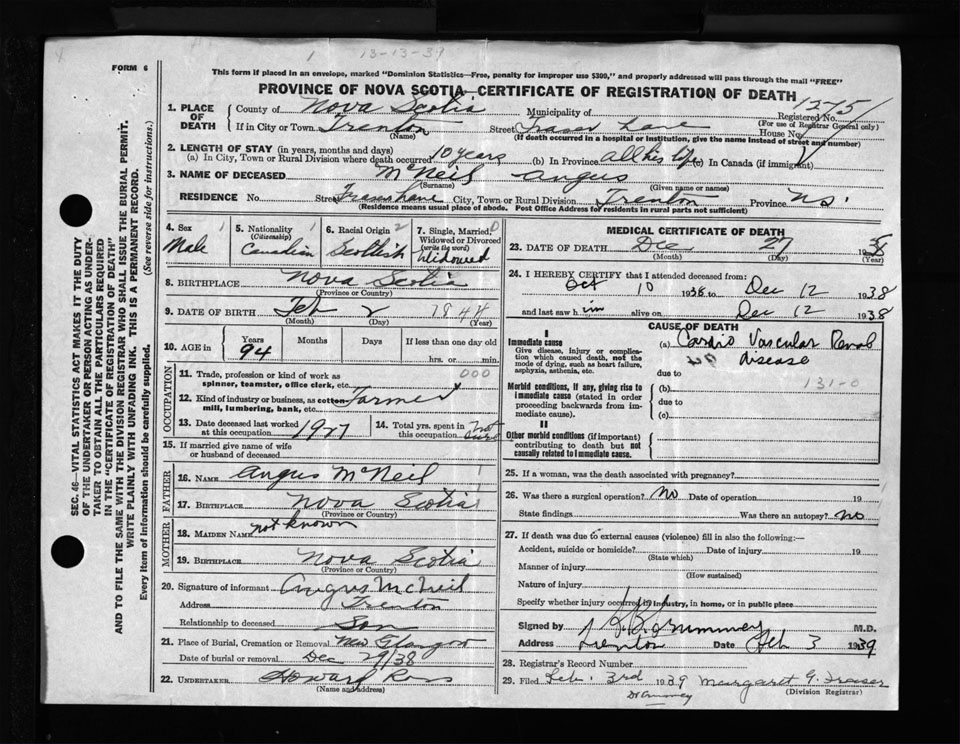 13-13-39
FORM 6
This form if placed in an envelope, marked "Dominion Statistics—Free, penalty for improper use $300," and properly addressed will pass through the mail "FREE"
PROVINCE OF NOVA SCOTIA—CERTIFICATE OF REGISTRATION OF DEATH
1. PLACE OF DEATH
County of Nova Scotia Municipality of Registered No. 1275
(For use of Registrar General only)
If in City or Town Trenton Street Lane House No.
(Name) (If death occurred in a hospital or institution, give the name instead of street and number)
2. LENGTH OF STAY (in years, months and days)
(a) In City, Town or Rural Division where death occurred 10 years (b) In Province all his life (c) In Canada (if immigrant)
3. NAME OF DECEASED McNeil Angus
(Surname) (Given name or names)
RESIDENCE No Street City, Town or Rural Division Trenton Province N.S.
(Residence means usual place of abode. Post Office Address for residents in rural parts not sufficient)
4. Sex
Male
5. Nationality
(Citizenship)
Canadian
6. Racial Origin
Scottish
7. Single, Married, Widowed or Divorced
(write the word)
Widowed
8. BIRTHPLACE Nova Scotia
(Province or Country)
9. DATE OF BIRTH Feb 2 1844
(Month) (Day) (Year)
10. AGE in
Years Months Days If less than one day old
94 hrs. or min.
OCCUPATION
11. Trade, profession or kind of work as spinner, teamster, office clerk, etc. 000
12. Kind of industry or business, as cotton mill, lumbering, bank, etc. Farmer
13. Date deceased last worked at this occupation 1927
14. Total yrs. spent in this occupation not sure
15. If married give name of wife or husband of deceased
FATHER
16. NAME Angus McNeil
17. BIRTHPLACE Nova Scotia
(Province or Country)
MOTHER
18. MAIDEN NAME not known
19. BIRTHPLACE Nova Scotia
(Province or Country)
20. Signature of informant Angus McNeil
Address Trenton
Relationship to deceased Son
21. Place of Burial, Cremation or Removal New Glasgow
Date of burial or removal Dec 29/38
22. UNDERTAKER Howard Ross
(Name and address)
MEDICAL CERTIFICATE OF DEATH
23. DATE OF DEATH Dec 27 1938
(Month) (Day) (Year)
24. I HEREBY CERTIFY that I attended deceased from:
Oct 10 1938 to Dec 12 1938
and last saw him alive on Dec 12 1938
CAUSE OF DEATH
I
Immediate cause
Give disease, injury or complication which caused death, not the mode of dying, such as heart failure, asphyxia, asthenia, etc.
(a) Cardio Vascular Renal disease
due to
Morbid conditions, if any, giving rise to immediate cause (stated in order proceeding backwards from immediate cause).
(b) 131-0
due to
(c)
II
Other morbid conditions (if important) contributing to death but not causally related to immediate cause.
25. If a woman, was the death associated with pregnancy?
26. Was there a surgical operation? no Date of operation 19
State findings Was there an autopsy? no
27. If death was due to external causes (violence) fill in also the following:—
Accident, suicide or homicide? Date of injury 19
(State which)
Manner of injury
(How sustained)
Nature of injury
Specify whether injury occurred in industry, in home, or in public place
Signed by M.D.
Address Trenton Date Feb 3 1939
28. Registrar's Record Number
29. Filed Feb. 3rd 1939 Margaret G. Fraser
(Division Registrar)
SEC. 46—VITAL STATISTICS ACT MAKES IT THE DUTY
OF THE UNDERTAKER OR PERSON ACTING AS UNDERTAKER TO OBTAIN ALL THE PARTICULARS REQUIRED
IN THE "CERTIFICATE OF REGISTRATION OF DEATH"
AND TO FILE THE SAME WITH THE DIVISION REGISTRAR WHO SHALL ISSUE THE BURIAL PERMIT.
WRITE PLAINLY WITH UNFADING INK. THIS IS A PERMANENT RECORD.
Every item of information should be carefully supplied. (See reverse side for instructions.)